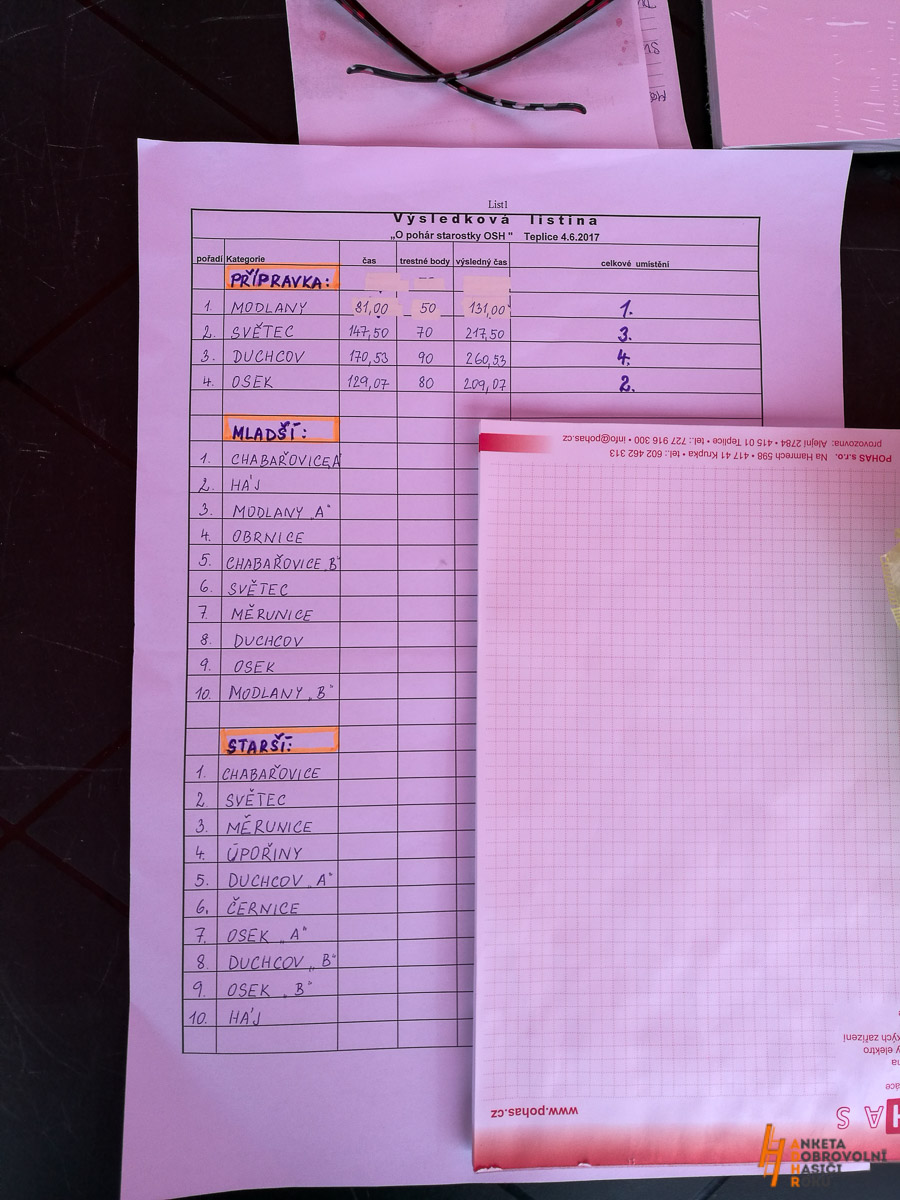 List1
Výsledková listina
„O pohár starostky OSH" Teplice 4.6.2017
pořadí Kategorie čas trestné body výsledný čas celkové umístění
PŘÍPRAVKA:
1. MODLANY 81,00 50 131,00 1.
2. SVĚTEC 147,50 70 217,50 3.
3. DUCHCOV 170,53 90 260,53 4.
4. OSEK 129,07 80 209,07 2.
MLADŠÍ:
1. CHABAŘOVICE„A
2. HÁJ
3. MODLANY „A"
4. OBRNICE
5. CHABAŘOVICE„B"
6. SVĚTEC
7. MĚRUNICE
8. DUCHCOV
9. OSEK
10. MODLANY „B"
STARŠÍ:
1. CHABAŘOVICE
2 SVĚTEC
3. MĚRUNICE
4. ÚPOŘINY
5. DUCHCOV „A"
6. ČERNICE
7. OSEK „A"
8. DUCHCOV „B"
9. OSEK „B"
10. HÁJ
POHAS s.r.o. Na Hamrech 598 • 417 41 Krupka • tel.: 602 462 313
provozovna: Alejní 2784 • 415 01 Teplice • tel.: 727 916 300 • info@pohas.cz
www.pohas.cz
HAS
ých zařízení
y elektro
na
áce
ANKETA
DOBROVOLNÍ
HASIČI
ROKU